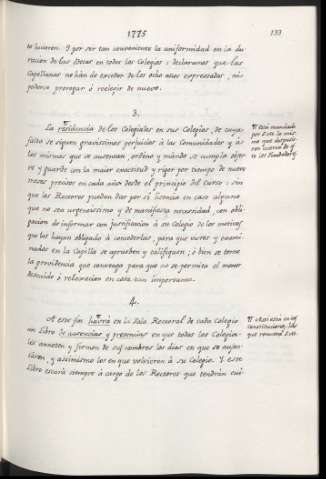 1775
133
te tuvieren. Y por ser tan conveniente la uniformidad en la du
racion de las Becas en todos los Colegios: declaramos que las
Capellanias no han de exceder de los ocho años expresados, ni
poderse prorogar ó reelegir de nuevo.
3.
La residencia de los Colegiales en sus Colegios, de cuya
falta se siguen gravisimos perjuicios á las Comunidades y á
los mismos que se ausentan, ordeno y mando se cumpla obser
ve y guarde con la maior exactitud y rigor por tiempo de nueve
meses precisos en cada año desde el principio del Curso: sin
que los Rectores puedan dar por sí licencia en caso alguno
que no sea urgentisimo y de manifiesta necesidad, con obli-
gacion de informar con justificacion á su Colegio de los motivos
que les hayan obligado á concederlas, para que vistos y exami
nados en la Capilla se aprueben y califiquen; ó bien se tome
la providencia que convenga para que no se permita el menor
descuido ó relaxacion en cosa tan importante.
4.
A este fin habrá en la Sala Rectoral de cada Colegio
un Libro de ausencias y presencias en que todos los Colegia-
les anoten y firmen de sus nombres los dias en que se ausen-
taren, y asimismo los en que volvieren á su Colegio. Y este
Libro estará siempre á cargo de los Rectores que tendrán cui-
Está mandado
por Este la mis
ma que dispusie
ron
Asi esta en las
Constituciones, lo
que renueva Este.